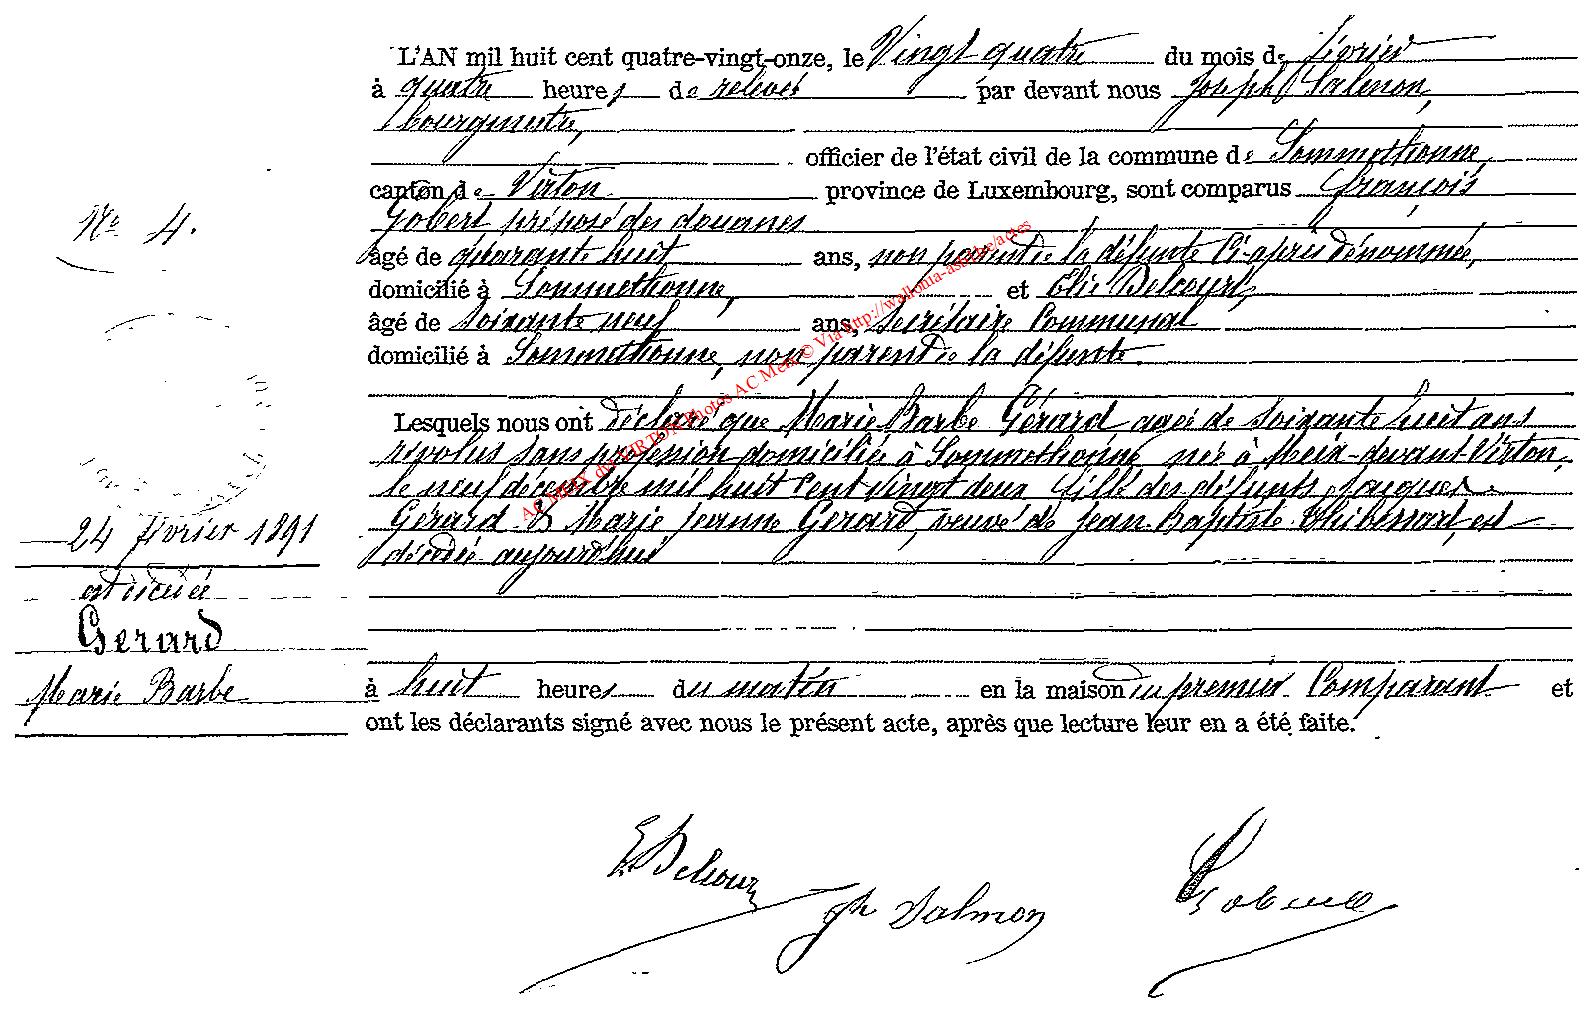 L'AN mil huit cent quatre-vingt-onze, le Vingt quatre du mois de février
à quatre heures de relevée par devant nous Joseph Salmon,
bourgmestre,
officier de l'état civil de la commune de Sommethonne,
canton de Virton province de Luxembourg, sont comparus François
Gobert préposé des douanes
âgé de quarante huit ans, non parent de la défunte Ci-après dénommée,
domicilié à Sommethonne, et Elie Delcourt,
âgé de soixante neuf ans, Secrétaire Communal
domicilié à Sommethonne, non parent de la défunte.
Lesquels nous ont déclaré que Marie Barbe Gérard agée de soixante huit ans
révolus sans profession domiciliée à Sommethonne née à Meix-devant-Virton,
le neuf décembre mil huit Cent vingt deux fille des défunts Jacques
Gérard & Marie Jeanne Gérard, veuve de Jean Baptiste Thibessart, est
décédée aujourd'hui
à huit heures du matin en la maison du premier Comparant et
ont les déclarants signé avec nous le présent acte, après que lecture leur en a été faite.
N° 4.
24 février 1891
est décédée
Gerard
Marie Barbe
E Delcour
Jh Salmon
AC MEIX dvt VIRTON Photos AC Meix © Via http://wallonia-asbl.be/actes